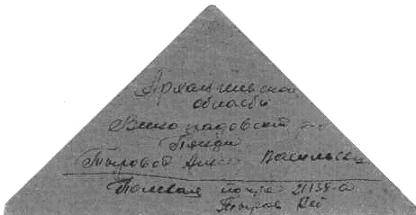 Архангельской
области
Виноградовский р-н
Тыровой Анне Васильевне
Полевая почта 21138-а